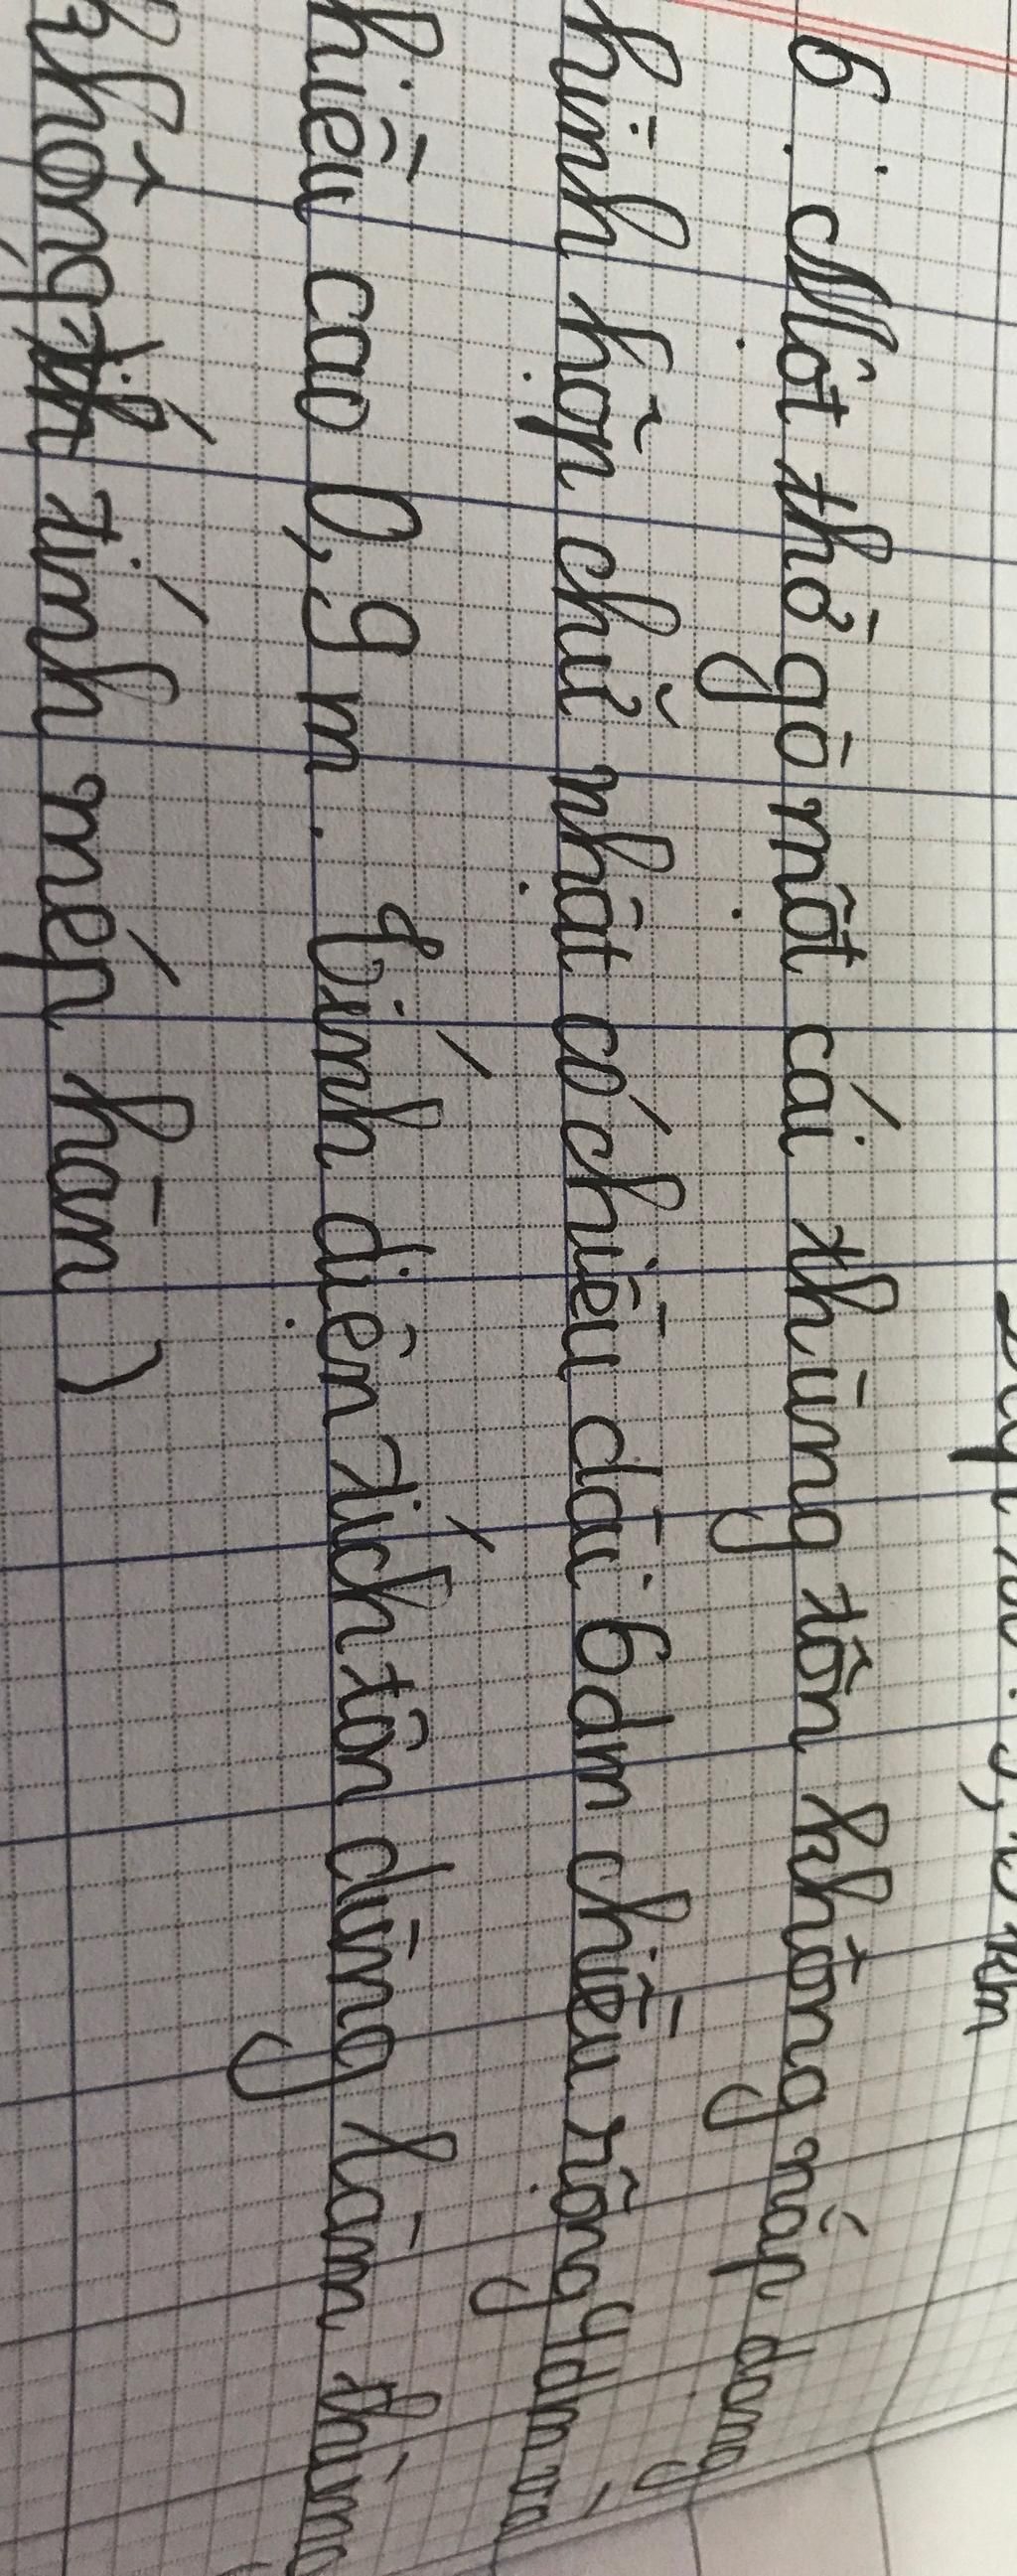 6. Một thờ gò một cái thùng tôn không nắp dạng
hình hộp chữ nhật có chiều dài 6dm chiều rộng 4dm và
hiều cao 0,9 m. Tính diện tích tôn dùng làm thùng
không th tính mép hàn)